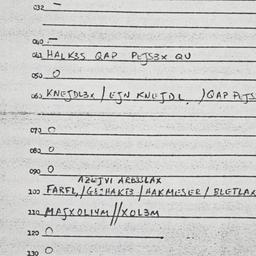 032 —
040 –
041 HALKBS QAP PEJSEX QU
050 O
060 KNEJDLEX / EJN KNEJDL. / QAP PEJS
070 O
080 O
090 O
AZEJVI ARBSLAX
100 FARFL, / GEHAKTS / HAKMESER / BLETLAX
110 MAJXOLIYM // XOLEM
120 O
130 O